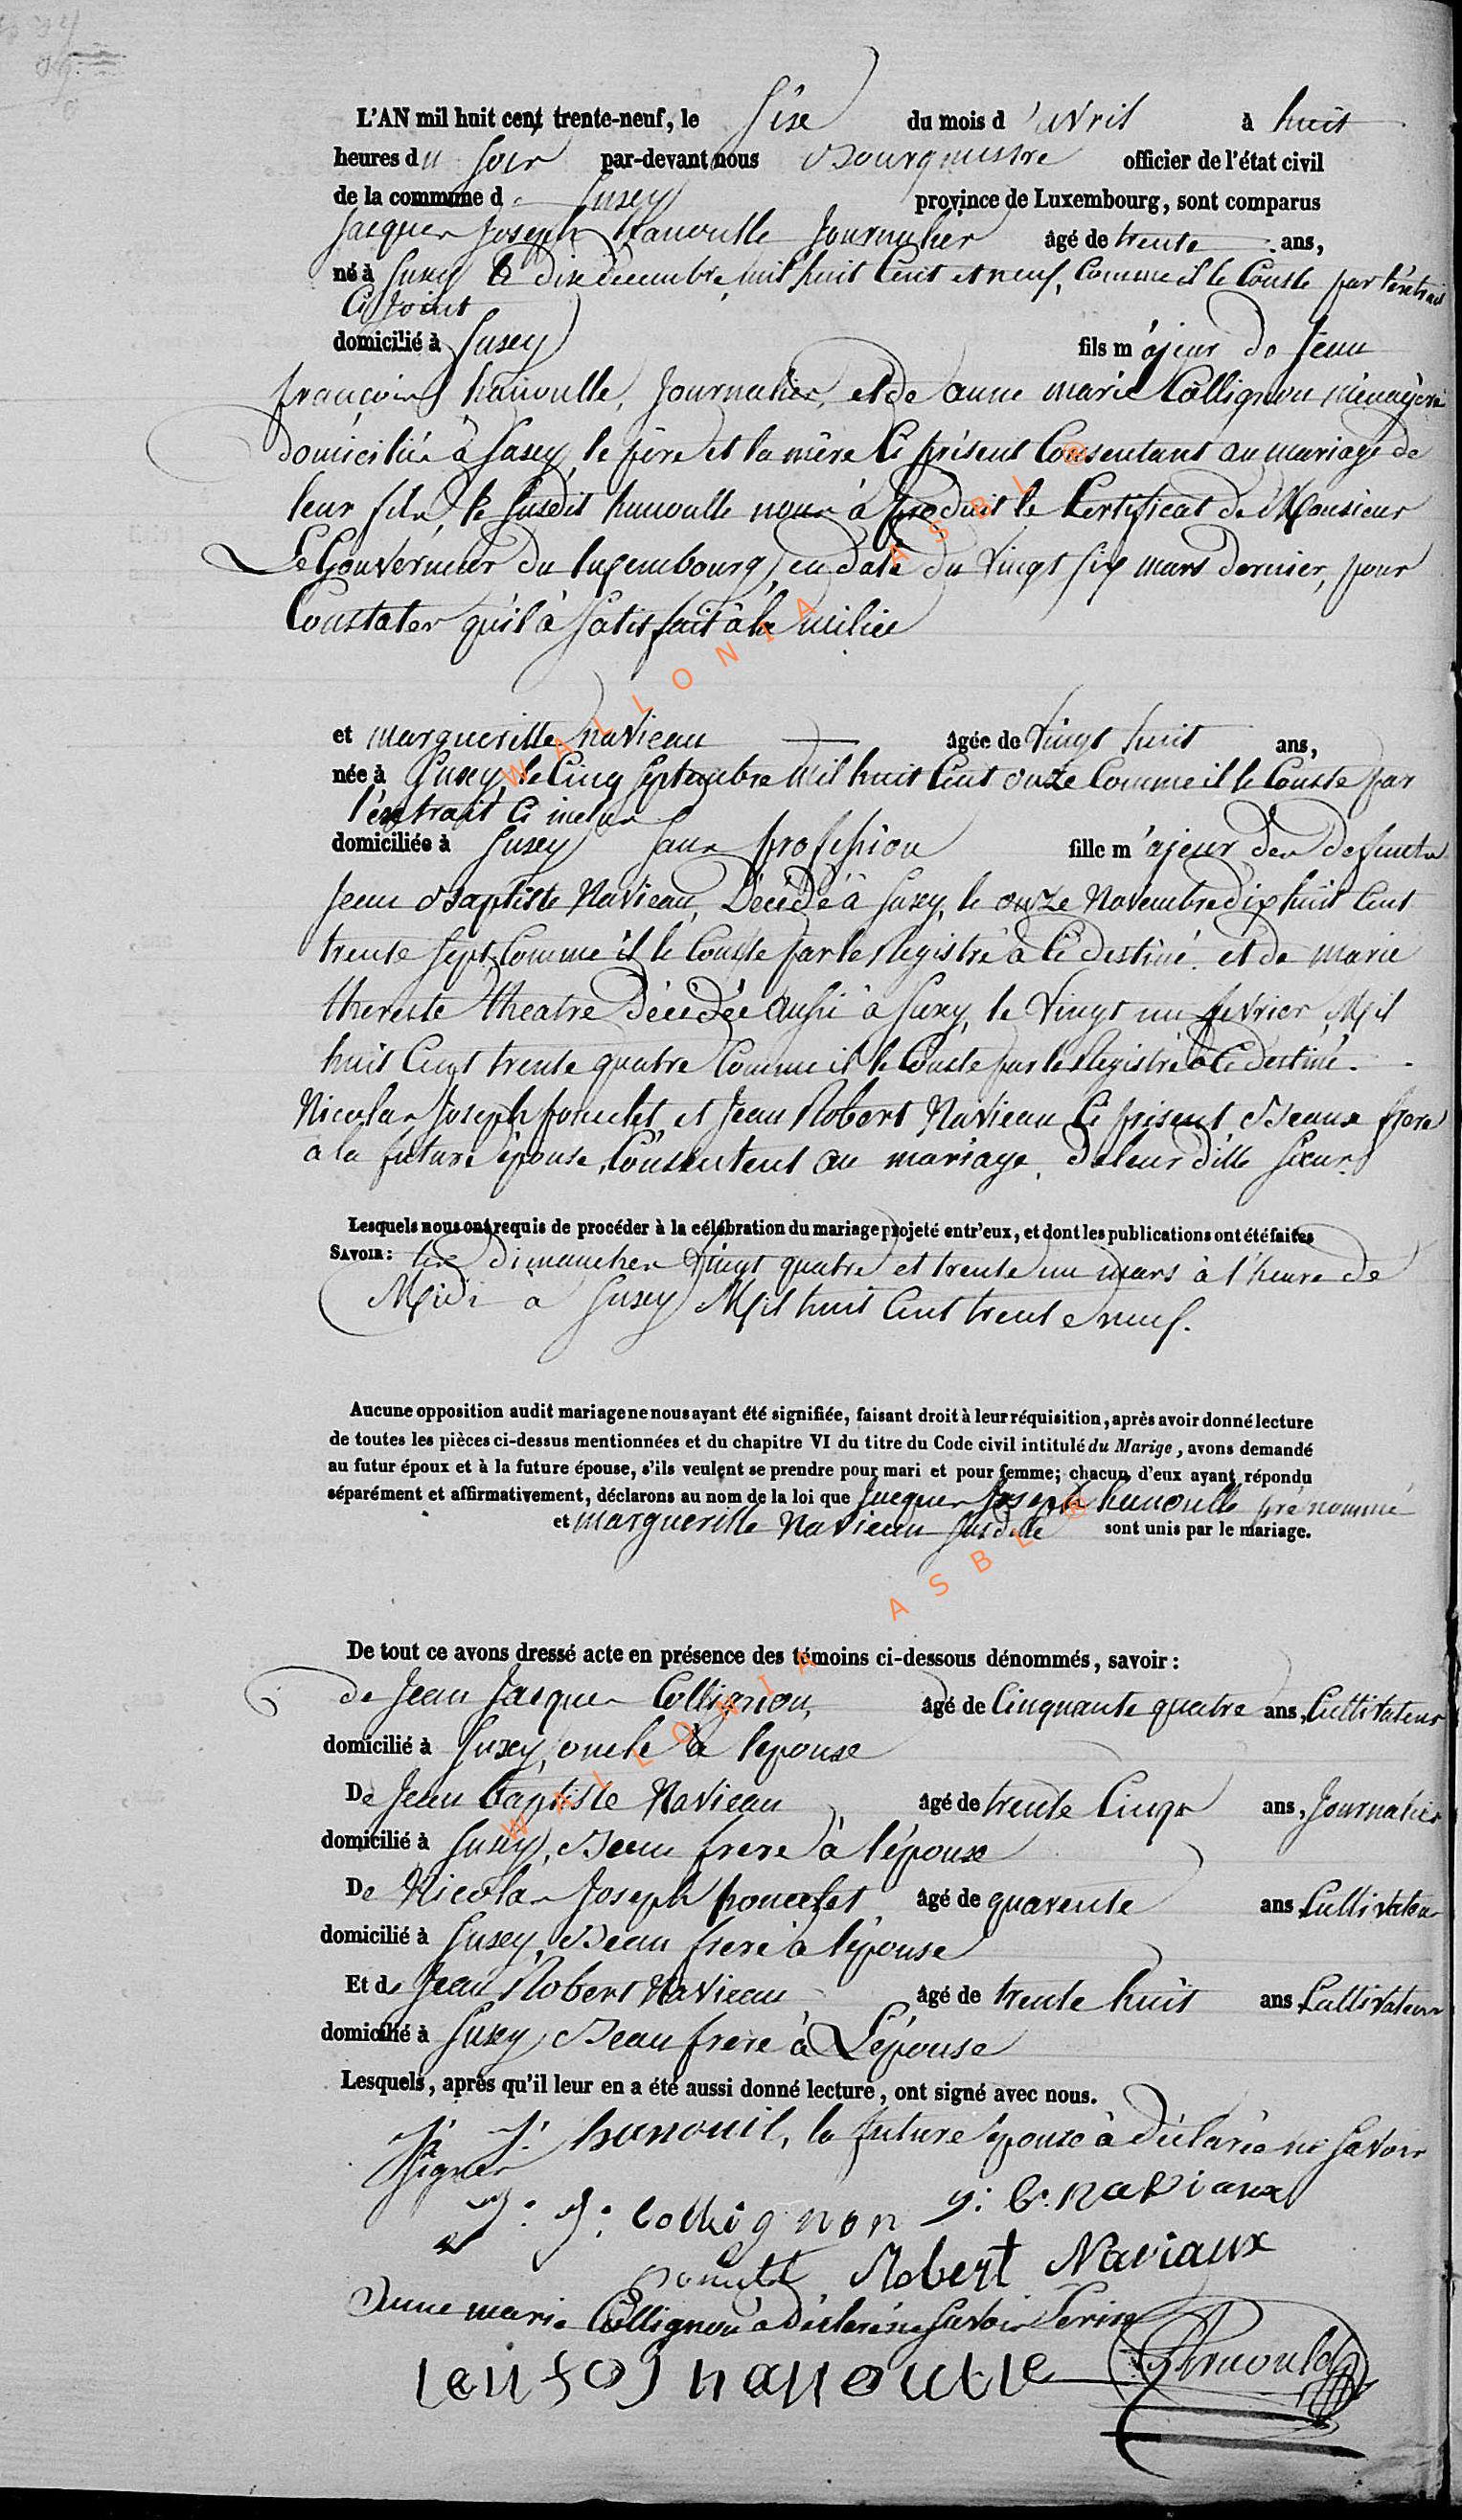 L'AN mil huit cent trente-neuf, le Sixe du mois d'avril à huit
heures du Soir par-devant nous Bourgmestre officier de l'état civil
de la commune d Suxey province de Luxembourg, sont comparus
Jacques Joseph hanoulle Journalier âgé de trente ans,
né à Suxey le dix decembre mil huit Cent et neuf, Comme il le Conste par l'extrait
Ci Joint
domicilié à Suxey fils m'ajeur de Jean
françois hanoulle, Journalier, et de anne marie Collignon ménagère
domiciliés à Suxey, le père et la mère Ci présent Consentant au mariage de
leur fils, le susdit hanoulle nous à produit le Certificat de Monsieur
Le Gouverneur du luxembourg, en date du vingt six mars dernier, pour
Constater qu'il à satisfait à la milice
et margueritte navieau âgée de vingt huit ans,
née à Suxey, le Cinq Septembre mil huit Cent onze Comme il le Conste par
l'extrait Ci inclus
domiciliée à Suxey sans profession fille m'ajeur des defunts
Jean Baptiste Navieau, Décédé à Suxey, le onze Novembre dix huit Cent
trente sept, Comme il le Conste par le Registre à Ce destiné. et de marie
thereste theatre décédée aussi à Suxey, le vingt un fevrier Mil
huit Cent trente quatre Comme il le Conste par le Registre à Ce destiné.
Nicolas Joseph poncelet, et Jean Robert Navieau Ci présent Beaux frere
à la future épouse, Consentent au mariage de leur dille Sœur
Lesquels nous ont requis de procéder à la célébration du mariage projeté entr'eux, et dont les publications ont été faites
SAVOIR: les dimanches vingt quatre et trente un mars à l'heure de
Midi à Suxey Mil huit Cent trente neuf.
Aucune opposition audit mariage ne nous ayant été signifiée, faisant droit à leur réquisition, après avoir donné lecture
de toutes les pièces ci-dessus mentionnées et du chapitre VI du titre du Code civil intitulé du Marige, avons demandé
au futur époux et à la future épouse, s'ils veulent se prendre pour mari et pour femme; chacun d'eux ayant répondu
séparément et affirmativement, déclarons au nom de la loi que Jacques Joseph hanoulle prénommé
et margueritte Navieau susditte sont unis par le mariage.
De tout ce avons dressé acte en présence des témoins ci-dessous dénommés, savoir :
de Jean Jacques Collignon, âgé de Cinquante quatre ans, Cultivateur
domicilié à Suxey, oncle à l'epouse
De Jean baptiste Navieau, âgé de trente Cinqs ans, Journalier
domicilié à Suxey, Beau frere à l'épouse
De Nicolas Joseph poncelet, âgé de quarente ans Cultivateur
domicilié à Suxey, Beau frere à l'épouse
Et de Jean Robert Navieau âgé de trente huit ans Cultivateur
domicilié à Suxey Beau frere à L'épouse
Lesquels, après qu'il leur en a été aussi donné lecture, ont signé avec nous.
J: J: hanouil, la future épouse à déclarée ne savoir
Signer
J: J: Collignon J: b. naviaux
Robert Naviaux
Anne marie Collignon a déclaré ne savoir Ecrire
Jean fos hanoulle Arnould
WALLONIA ASBL ®
WALLONIA ASBL ®